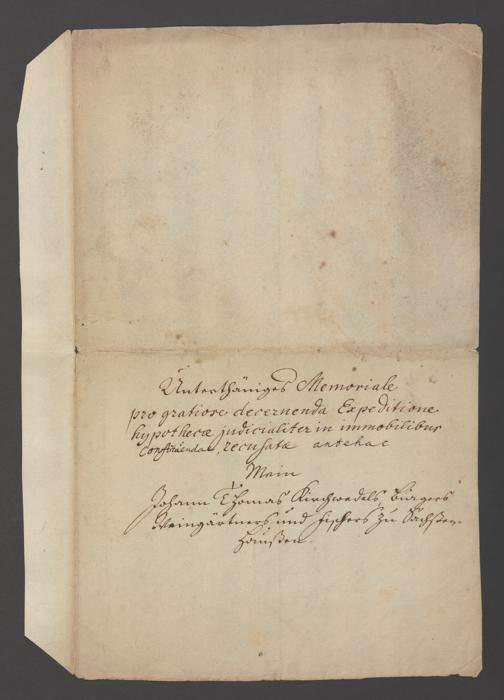 Unterthäniges Memoriale
pro gratiose decernenda Expeditione
hypothecæ judicialiter in immobilibus
constituendæ, recusatæ antehac
Mein
Johann Thomas Kirchwedels, Burgers
Weingärtners, und Fischers zu Sachßen-
haußen.